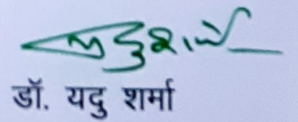 डॉ. यदु शर्मा